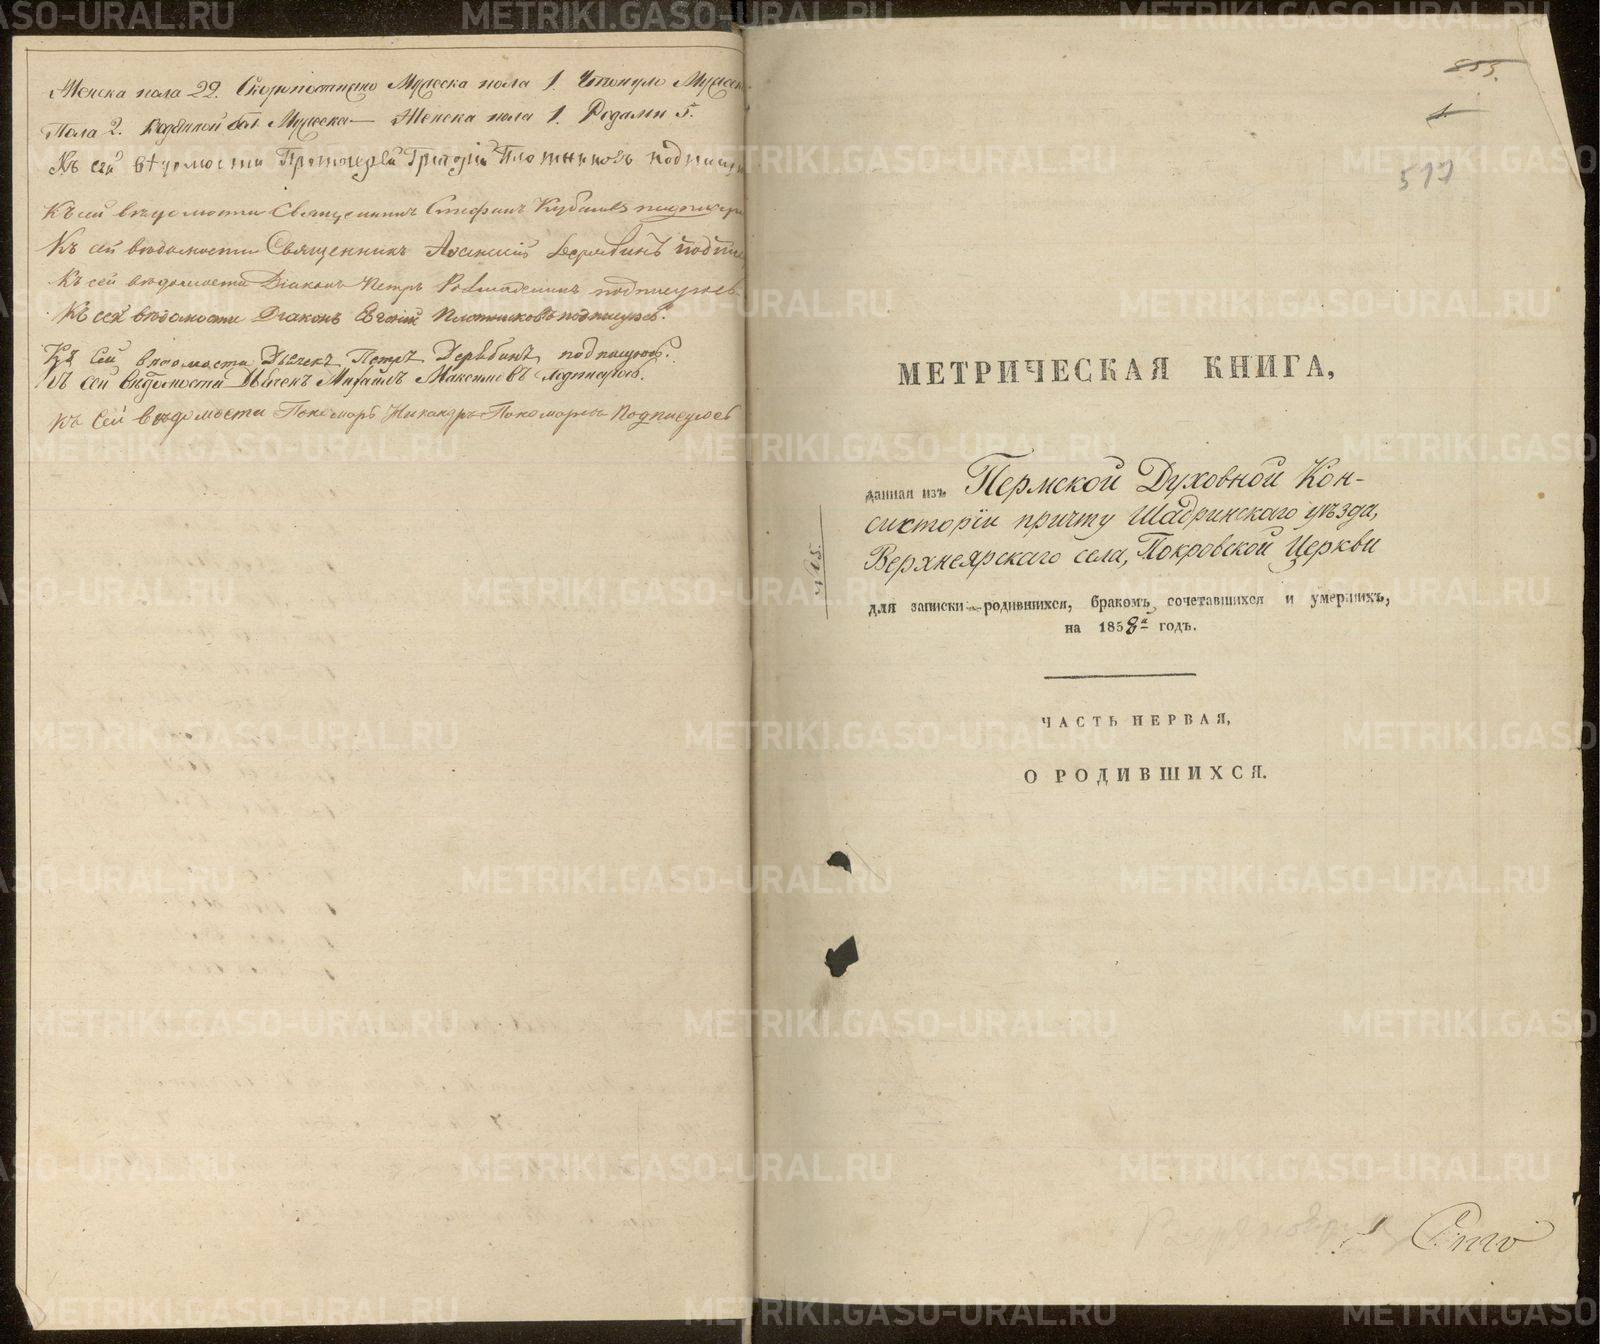 Женска пола 22. Скоропостижно Мужеска пола 1. Утонуло Мужеск
Пола 2. Водяной бол. Мужеска — Женска пола 1. Родами 5.
Къ сей вѣдомости Протоіерей Григорій Плотниковъ подпису
Къ сей вѣдомости Священникъ Стефанъ подписуюс
Къ сей вѣдомости Священникъ Дерябинъ подпис
Къ сей вѣдомости Діаконъ Петръ подписуюсь
Къ сей вѣдомости Діаконъ Евгеній Плотниковъ подписуюсь.
Къ сей вѣдомости Дьячекъ Петръ Дерябинъ подписуюсь.
Къ сей вѣдомости Дьячекъ Михаилъ Максимовъ подписуюсь.
къ сей вѣдомости Пономарь Никандръ Пономаревъ Подписуюсь
855.
1
517
МЕТРИЧЕСКАЯ КНИГА,
данная изъ Пермской Духовной Кон-
систоріи причту Шадринскаго уѣзда,
Верхнеярскаго села, Покровской Церкви
для записки родившихся, бракомъ сочетавшихся и умершихъ,
на 1858й годъ.
ЧАСТЬ ПЕРВАЯ,
О РОДИВШИХСЯ.
METRIKI.GASO-URAL.RU